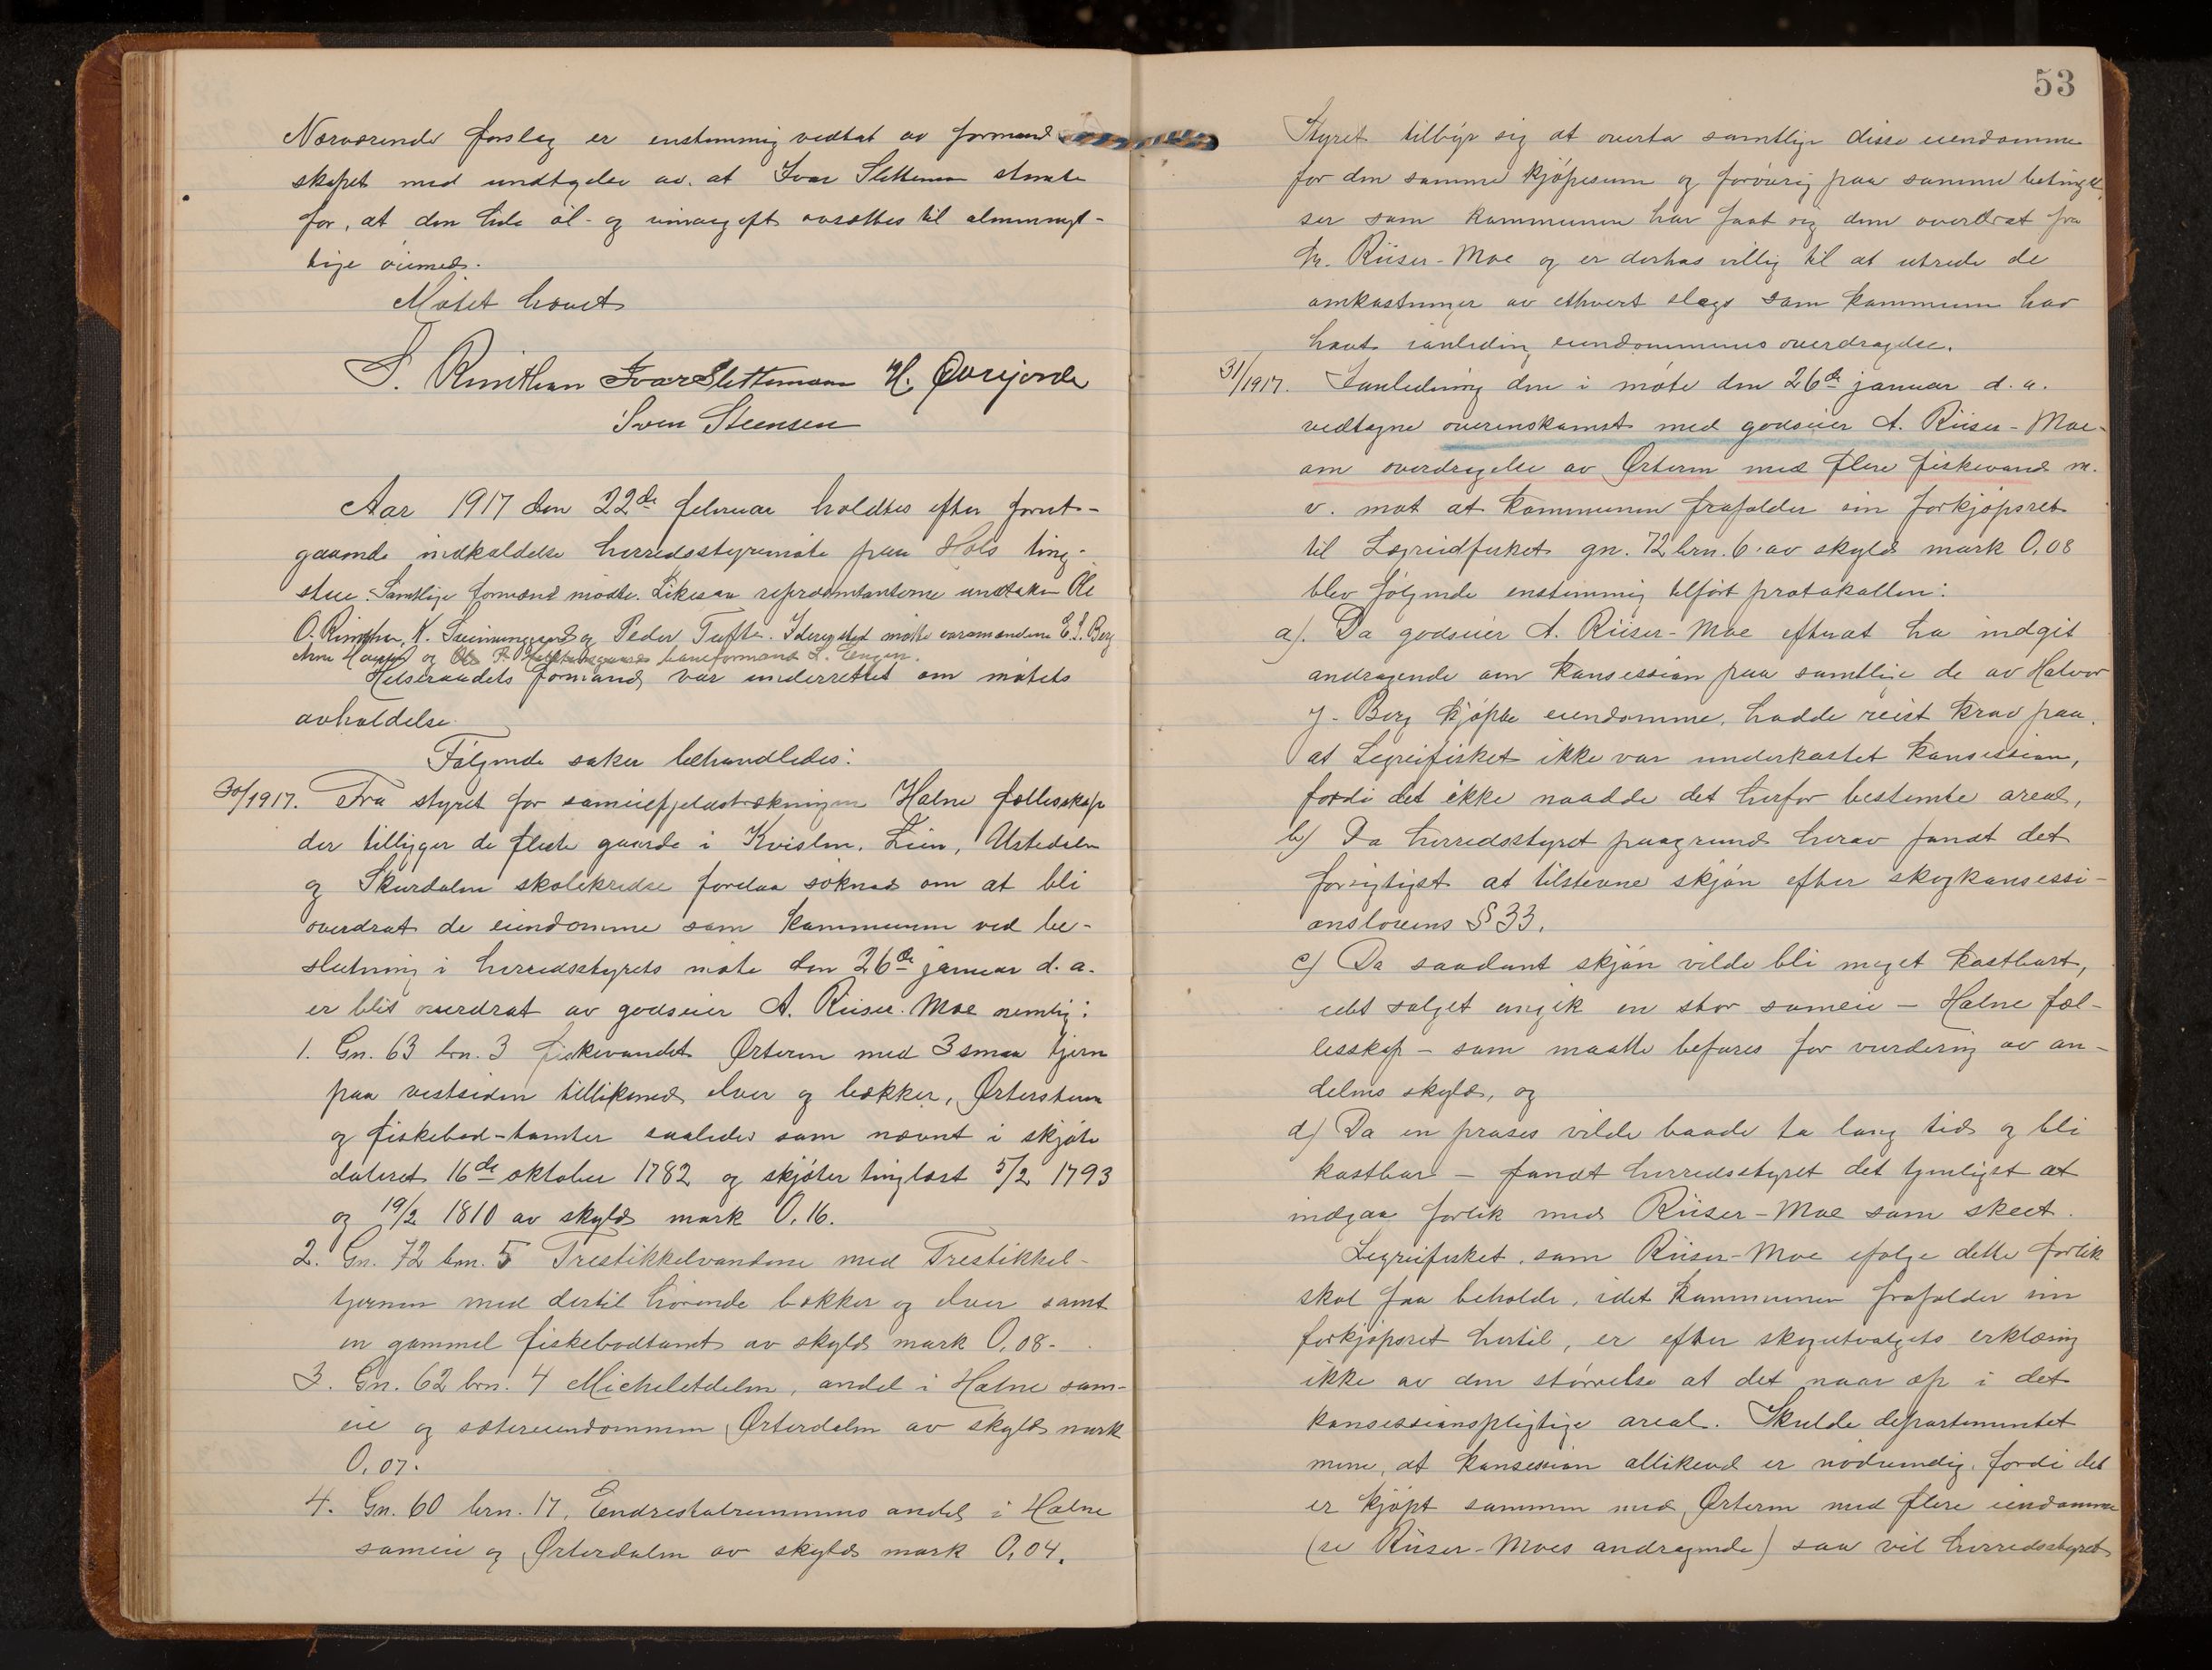 Nærværende forslag er enstemmig vedtat av formand-
skapet med undtagelse av, at Ivar Slettemoen stemte
for, at den hele øl- og vinavgift avsættes til almennyt-
tige øiemed.
Møtet hævet
S. Rimthun Ivar Slettemoen H. Øvrejorde
Sven Steensen
Aar 1917 den 22de februar holdtes efter forut-
gaaende indkaldelse herredsstyremøte paa Hols ting-
stue. Samtlige formænd mødte. Likesaa repræsentanterne undtaken Ole
O. Rimthun, K. og Peder Tufte. I deres sted møtte varamændene E. S. Berg
Arne og baneformand L. Engen.
Helseraadets formand var underrettet om møtets
avholdelse.
Følgende saker behandledes:
30/1917. Fra styret for sameiefjeldstrækningen Halne fællesskap
der tilligger de fleste gaarde i Kvislen, Lien, Ustedalen
og Skurdalen skolekredse forelaa søknad om at bli
overdrat de eiendomme som kommunen ved be-
slutning i herredsstyrets møte den 26de januar d. a.
er blit overdrat av godseier A. Riiser-Moe nemlig:
1. Gn. 63 brn. 3 fiskevandet Ørteren med 3 smaa tjern
paa vestsiden tillikemed elver og bækker, Ørterstuen
og fiskebod-tomter saaledes som nævnt i skjøte
dateret 16de oktober 1782 og skjøter tinglæst 5/2 1793
og 19/2 1810 av skyld mark 0,16.
2. Gn. 72 brn. 5 Trestikkelvandene med Trestikkel-
tjernen med dertil hørende bækker og elver samt
en gammel fiskebodtomt av skyld mark 0,08.
3. Gn. 62 brn. 4 Micheletdelen, andel i Halne sam-
eie og sætereiendommen Ørterdalen av skyld mark
0,07.
4. Gn. 60 brn. 17, andel i Halne
sameie og Ørterdalen av skyld mark 0,04.
53
Styret tilbyr sig at overta samtlige disse eiendomme
for den samme kjøpesum og forøvrig paa samme betingel-
ser som kommunen har faat sig dem overdrat fra
hr. Riiser-Moe og er derhos villig til at utrede de
omkostninger av ethvert slags som kommunen har
havt i anledning eiendommenes overdragelse.
31/1917. I anledning den i møte den 26de januar d. a.
vedtagne overenskomst med godseier A. Riiser-Moe
om overdragelse av Ørteren med flere fiskevand m.
v. mot at kommunen frafalder sin forkjøpsret
til Lægreidfisket gn. 72 brn. 6 av skyld mark 0,08
blev følgende enstemmig tilført protokollen:
a). Da godseier A. Riiser-Moe efterat ha indgit
andragende om konsession paa samtlige de av Halvor
J. Berg kjøpte eiendomme, hadde reist krav paa,
at Legreifisket ikke var underkastet konsession,
fordi det ikke naadde det herfor bestemte areal,
b) Da herredsstyret paagrund herav fandt det
forsigtigst at tilstevne skjøn efter skogkonsessi-
onslovens § 33,
c) Da saadant skjøn vilde bli meget kostbart,
idet salget angik en stor sameie – Halne fæl-
lesskap – som maatte befares for vurdering av an-
delens skyld, og
d) Da en proses vilde baade ta lang tid og bli
kostbar – fandt herredsstyret det tjenligst at
indgaa forlik med Riiser-Moe som skeet.
Legreifisket, som Riiser-Moe ifølge dette forlik
skal faa beholde, idet kommunen frafalder sin
forkjøpsret hertil, er efter skogutvalgets erklæring
ikke av den størrelse at det naar op i det
konsessionspligtige areal. Skulde departementet
mene, at konsession allikevel er nødvendig, fordi det
er kjøpt sammen med Ørteren med flere eiendomme
(se Riiser-Moes andragende) saa vil herredsstyret